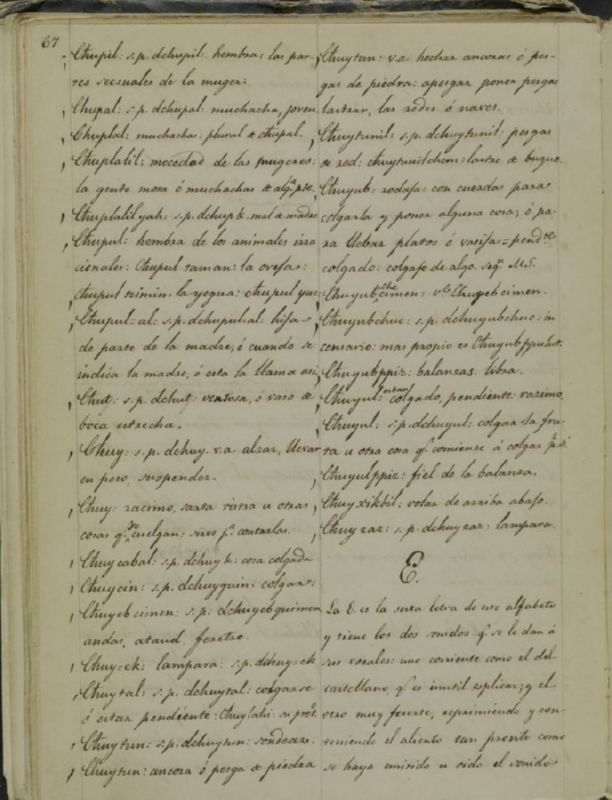 67
Chupil: s.p. dchupil: hembra: las par-
tes secsuales de la muger:
Chupal: s.p. dchupal: muchacha, joven
Chuplal: muchachas: plural de chupal.
Chuplalil: mocedad de las mugeres:
la gente moza ó muchachas de
Chuplalil yah: s.p. dchup &. mal de madre
Chupul: hembra de los animales irra
cionales: Chupul taman: la oveja:
chupul tzimin: la yegua: chupul
Chupul-al: s.p. dchupulal: hija
de parte de la madre, ó cuando se
indica la madre, ó esta la llama asi.
s.p. ventosa, ó vaso de
boca estrecha.
Chuy: s.p. dchuy. v.a. alzar, llevar
en peso, suspender.
Chuy: racimo, sarta ristra u otras
cosas q.e cuelgan: sirve p.a contarlas.
Chuycabal: s.p. dchuy &: cosa colgada
Chuycin: s.p. dchuyquin: colgar:
Chuyeb cimen: s.p. dchuyebquimen
andas, ataud feretro.
Chuycek: lampara: s.p. dchuycek
Chuytal: s.p. dchuytal: colgarse
ó estar pendiente: Chuylahi: su pret.
Chuytun: s.p. dchuytun: sondear.
Chuytun: ancora ó pesga de piedra
Chuytun: v.a. hechar ancoras ó pes-
gas de piedra: apesgar poner pesgas
lastrar, las redes ó naves.
Chuytunil: s.p. dchuytunil: pesgas
de red: chuytunilchem: lastre de buque.
Chuyub: rodaja con cuerdas para
colgarla y poner alguna cosa; ó pa-
ra llevar platos ó vasijas = pend.te
colgado: colgajo de algo. Seg.n M.S.
Chuyubcimen: v.e Chuyebcimen.
Chuyubchuc: s.p. dchuyubchuc: in
censario: mas propio es Chuyubppulut.
Chuyubppiz: balanzas. libra.
Chuyul: estar colgado, pendiente: racimo,
Chuyul: s.p. dchuyul: colgar la fru
ta u otra cosa q.e comienze á colgar p.r si
Chuyulppiz: fiel de la balanza.
Chuyxikbil: volar de arriba abajo.
Chuyzaz: s.p. dchuyzaz: lampara.
E.
La E. es la sesta letra de ese alfabeto
y tiene los dos sonidos q.e se le dan á
sus vocales: uno corriente como el del
castellano, q.e es inutil esplicar; y el
otro muy fuerte, reprimiendo y con-
teniendo el aliento tan pronto como
se haya emitido u oido el sonido